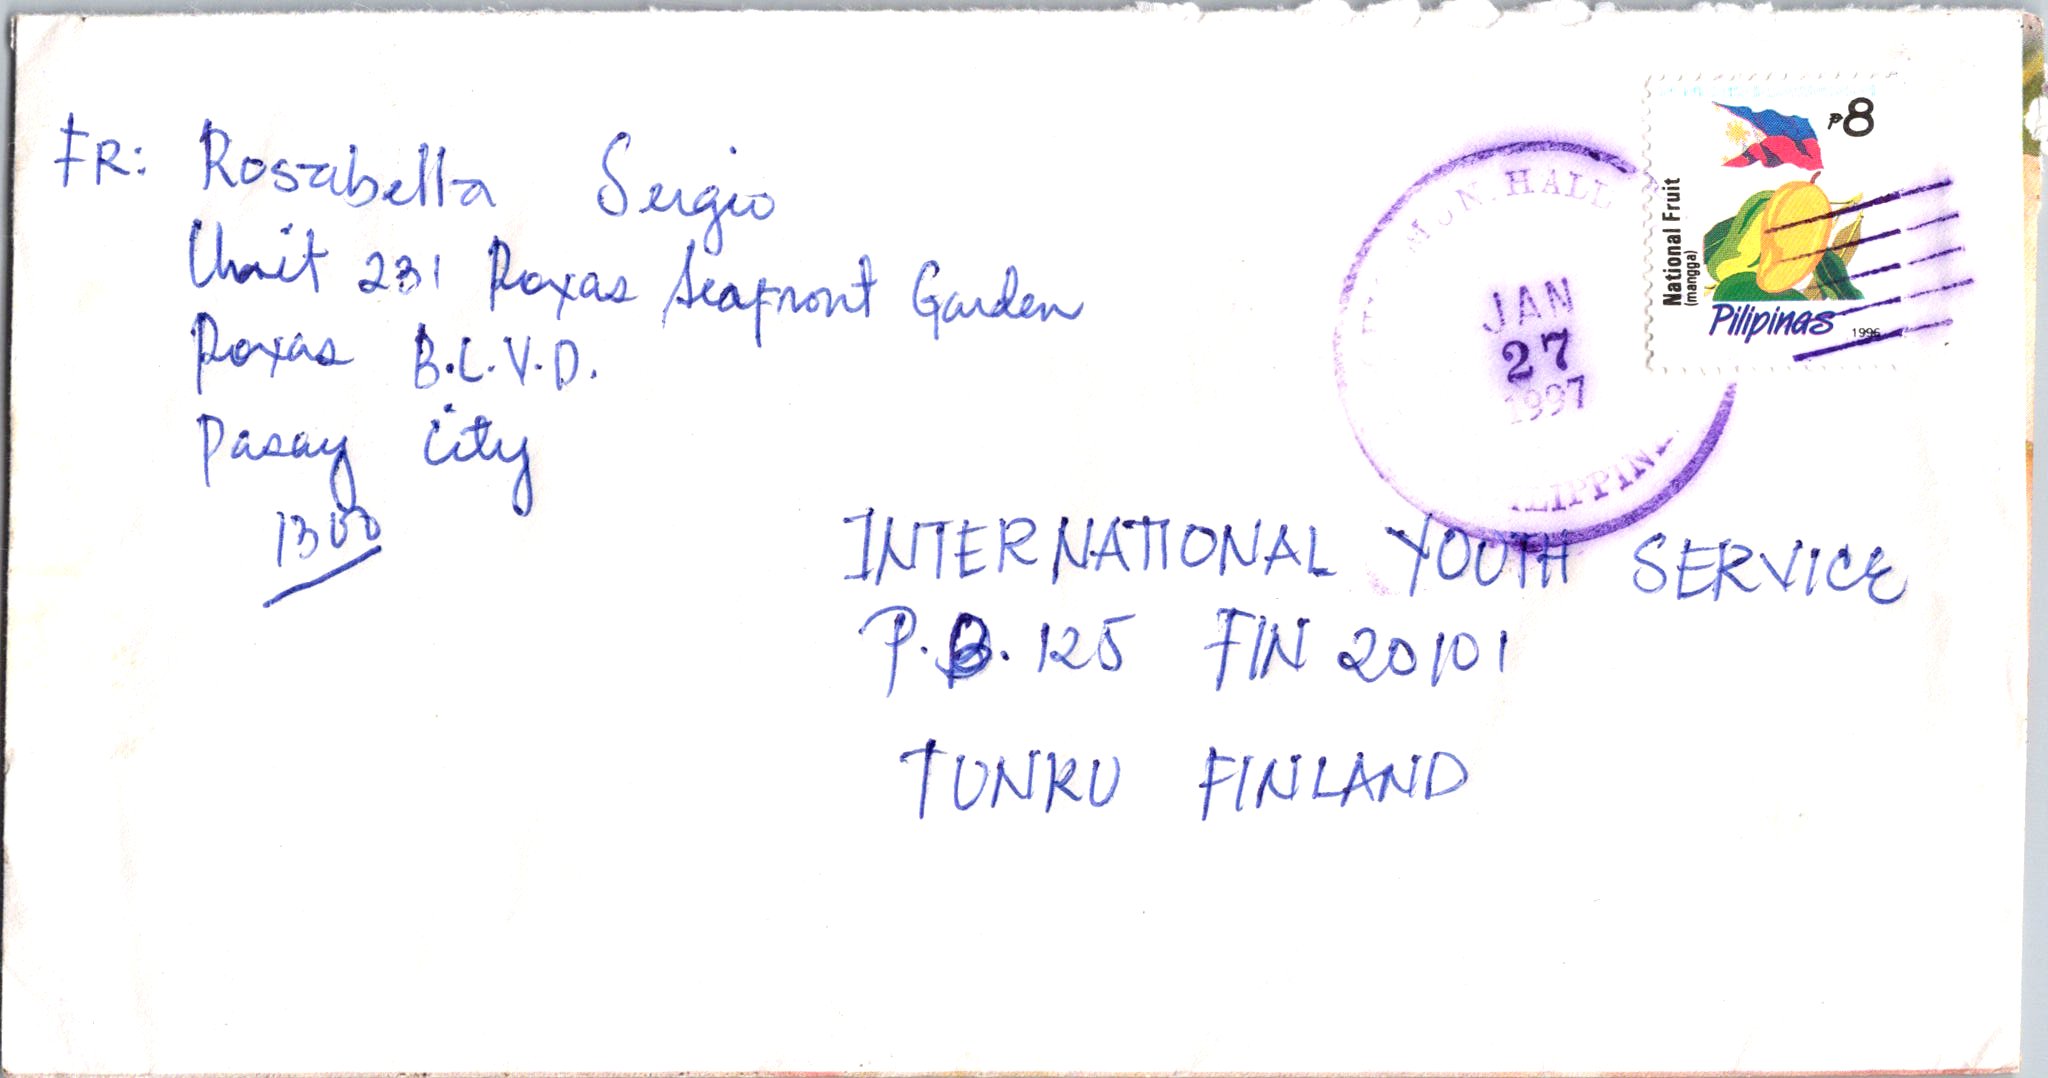 FR: Rosabella Sergio
Unit 231 Roxas Seafront Garden
Roxas B.L.V.D.
Pasay City
1300
MUN. HALL
JAN
27
1997
₱8
National Fruit
(mangga)
Pilipinas 1996
INTERNATIONAL YOUTH SERVICE
P.B. 125 FIN 20101
TUNRU FINLAND